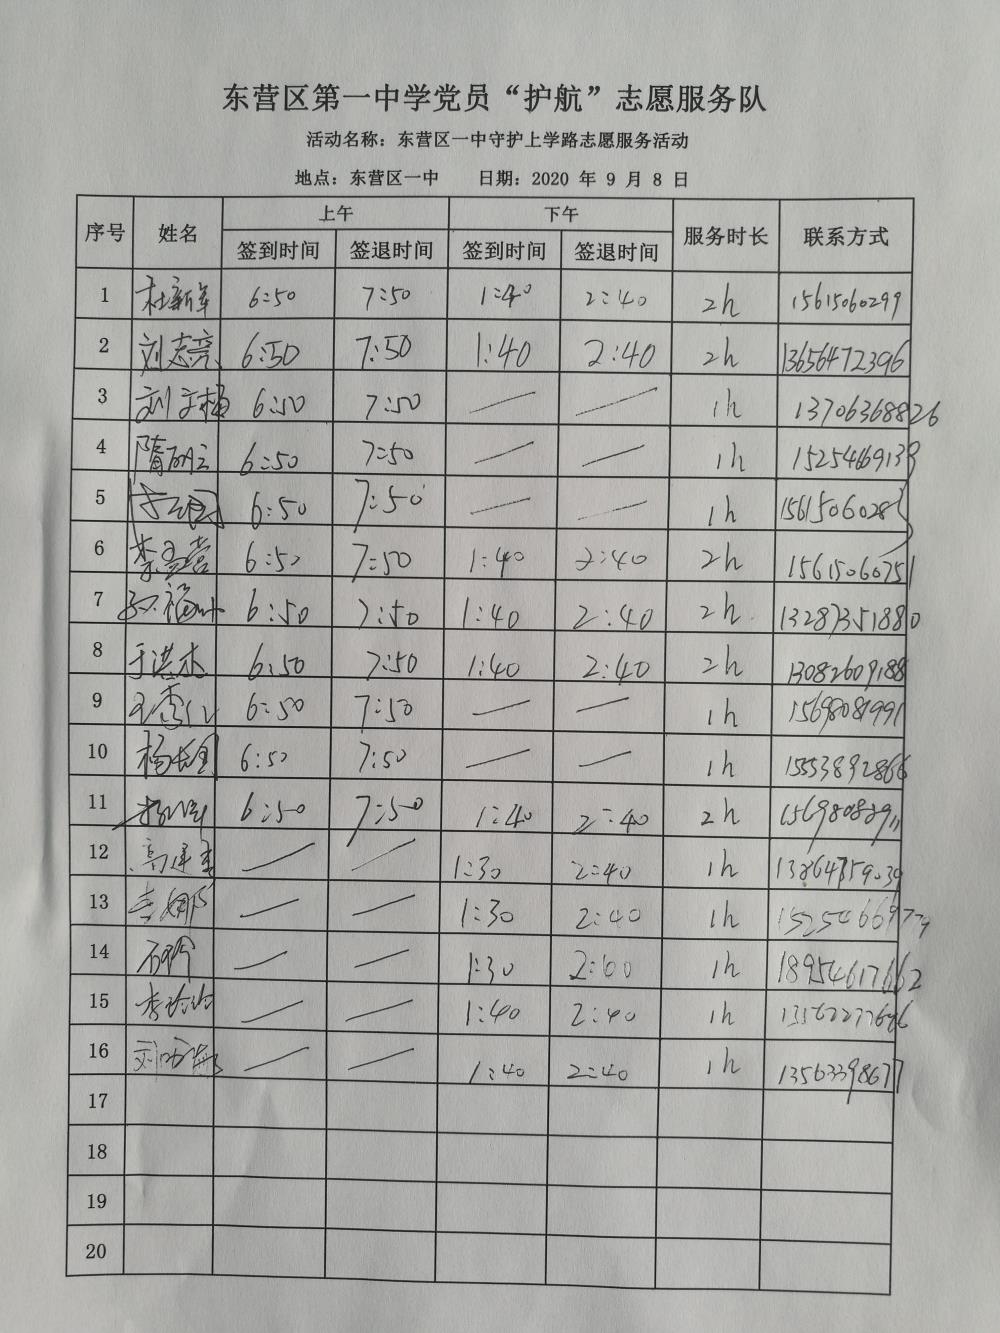 东营区第一中学党员“护航”志愿服务队
活动名称：东营区一中守护上学路志愿服务活动
地点：东营区一中 日期：2020 年 9 月 8 日
序号 姓名 上午 下午 服务时长 联系方式
签到时间 签退时间 签到时间 签退时间
1 杜新军 6:50 7:50 1:40 2:40 2h 15615060299
2 刘志亮 6:50 7:50 1:40 2:40 2h 13656472396
3 6:50 7:50 — — 1h 13706368826
4 6:50 7:50 — — 1h 15254669139
5 6:50 7:50 — — 1h
6 李孟营 6:50 7:50 1:40 2:40 2h 15615060751
7 6:50 7:50 1:40 2:40 2h 13287351880
8 于洪杰 6:50 7:50 1:40 2:40 2h 13082609188
9 6:50 7:50 — — 1h 15698081991
10 6:50 7:50 — — 1h 15553892866
11 6:50 7:50 1:40 2:40 2h
12 — — 1:30 2:40 1h 13864759039
13 — — 1:30 2:40 1h 15254669779
14 — — 1:30 2:00 1h 18954617662
15 — — 1:40 2:40 1h
16 — — 1:40 2:40 1h 13563398677
17
18
19
20